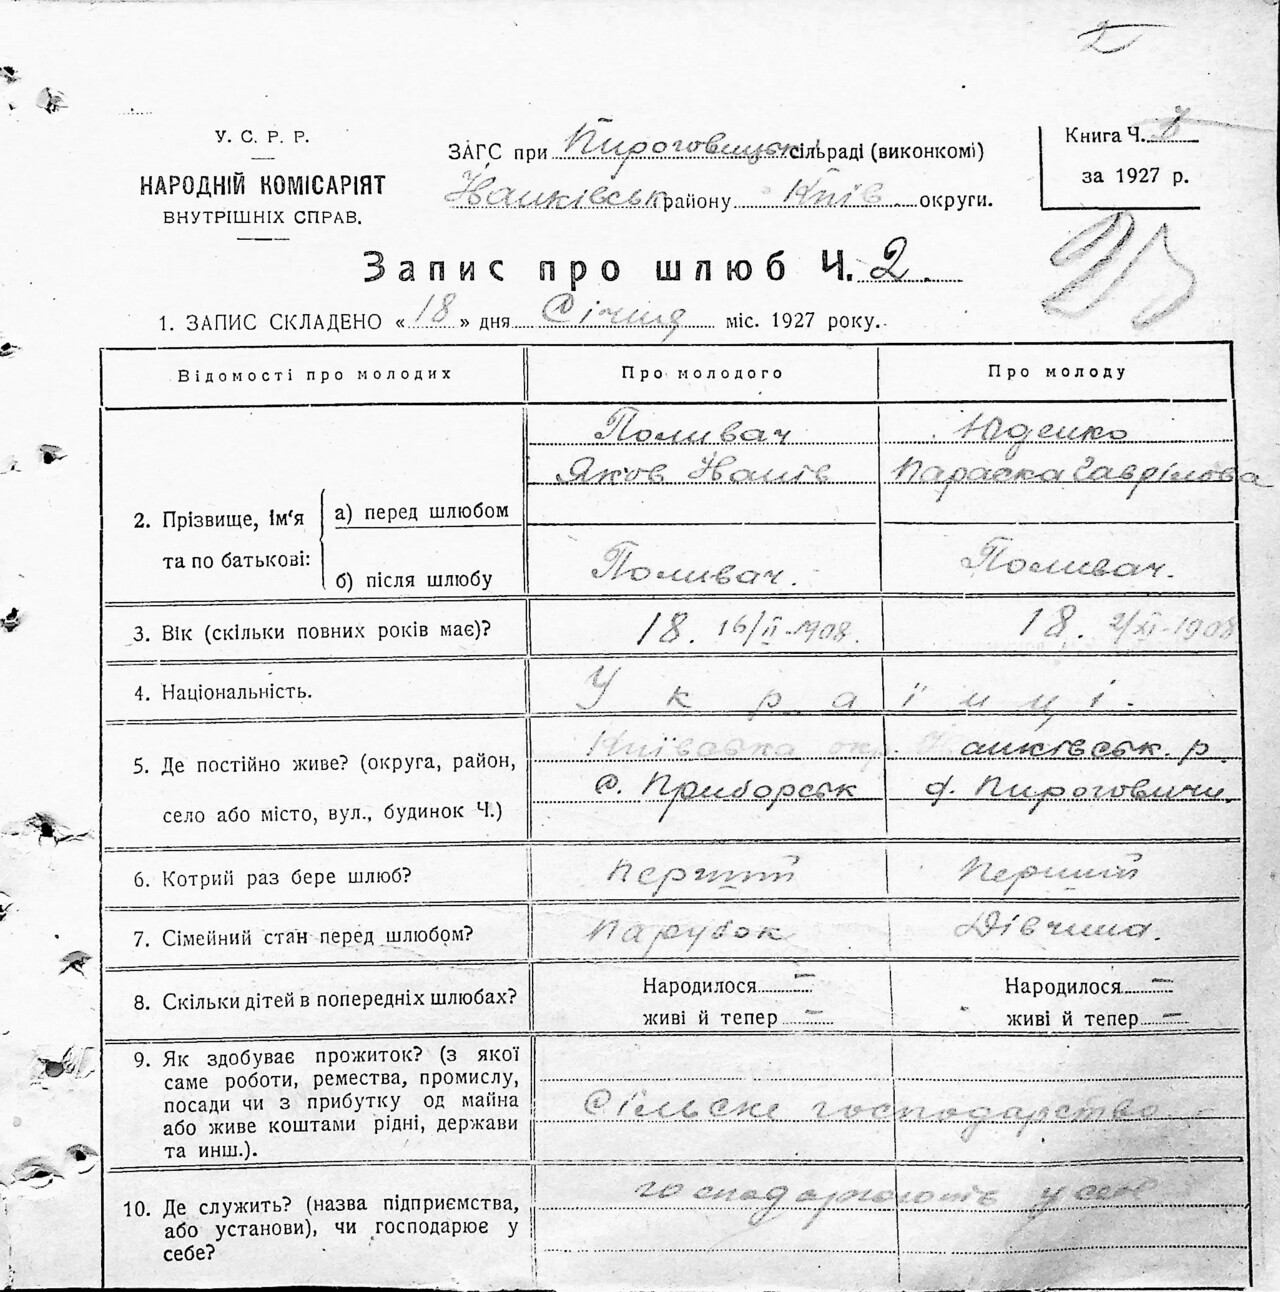 2
У. С. Р. Р.
НАРОДНІЙ КОМІСАРІЯТ
ВНУТРІШНІХ СПРАВ.
ЗАГС при Пироговицьк сільраді (виконкомі)
Іванківськ району Київ округи.
Книга Ч.
за 1927 р.
Запис про шлюб Ч. 2
1. ЗАПИС СКЛАДЕНО « 18 » дня Січня міс. 1927 року.
Відомості про молодих Про молодого Про молоду
Поливач Юденко
Яков Іванів Параска Гаврілова
2. Прізвище, ім'я та по батькові: а) перед шлюбом
б) після шлюбу Поливач. Поливач.
3. Вік (скільки повних років має)? 18. 16/II-1908. 18. 2/XI-1908
4. Національність. Українці.
5. Де постійно живе? (округа, район, Київська окр. Іванківськ. р.
село або місто, вул., будинок Ч.) с. Приборськ с. Пироговичи.
6. Котрий раз бере шлюб? Перший Перший
7. Сімейний стан перед шлюбом? Парубок Дівчина.
8. Скільки дітей в попередніх шлюбах? Народилося — Народилося —
живі й тепер — живі й тепер —
9. Як здобуває прожиток? (з якої
саме роботи, ремества, промислу,
посади чи з прибутку од майна Сільске господарство
або живе коштами рідні, держави
та инш.).
10. Де служить? (назва підприємства, господарюють у себе
або установи), чи господарює у
себе?